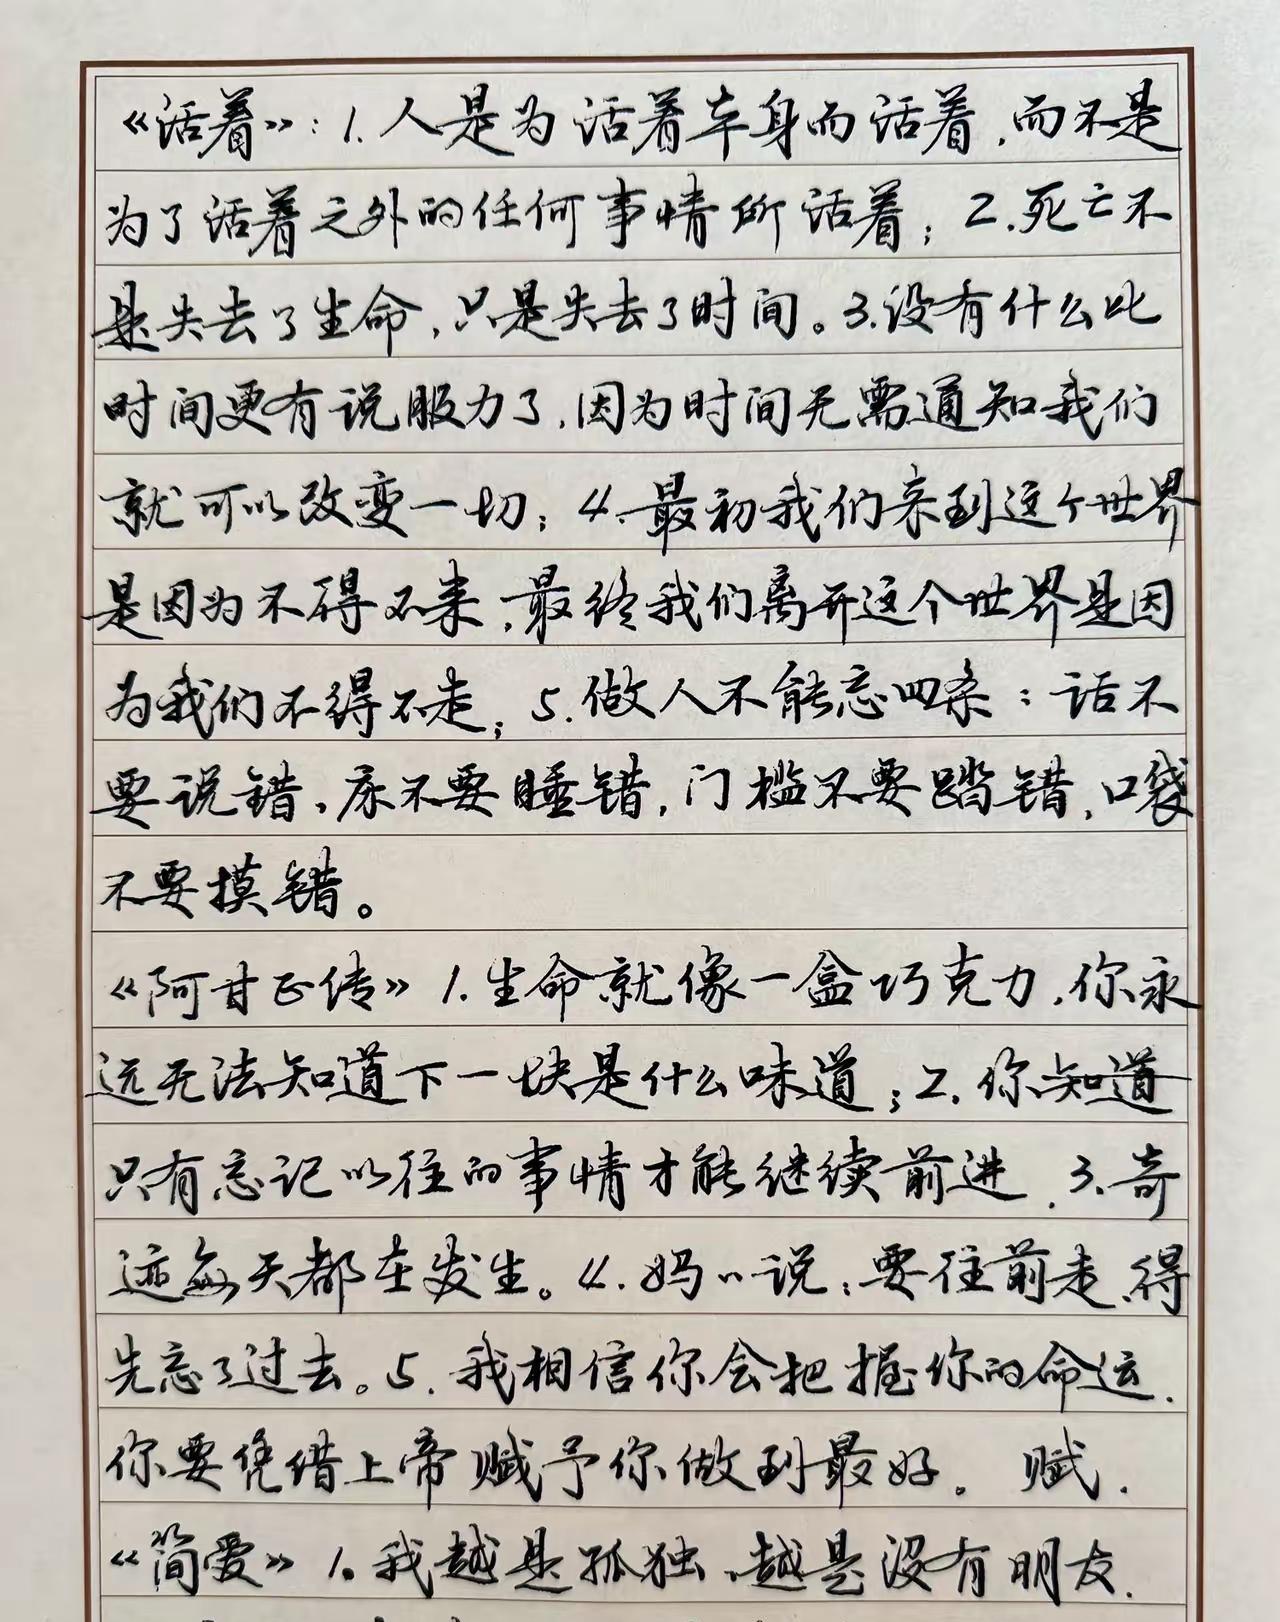 《活着》：1.人是为活着本身而活着，而不是
为了活着之外的任何事情所活着；2.死亡不
是失去了生命，只是失去了时间。3.没有什么比
时间更有说服力了，因为时间无需通知我们
就可以改变一切；4.最初我们来到这个世界
是因为不得不来，最终我们离开这个世界是因
为我们不得不走；5.做人不能忘四条：话不
要说错、床不要睡错，门槛不要踏错，口袋
不要摸错。
《阿甘正传》1.生命就像一盒巧克力，你永
远无法知道下一块是什么味道；2.你知道
只有忘记以往的事情才能继续前进．3.奇
迹每天都在发生。4.妈〃说：要往前走，得
先忘了过去。5.我相信你会把握你的命运．
你要凭借上帝赋予你做到最好。 赋．
《简爱》1.我越是孤独，越是没有朋友．